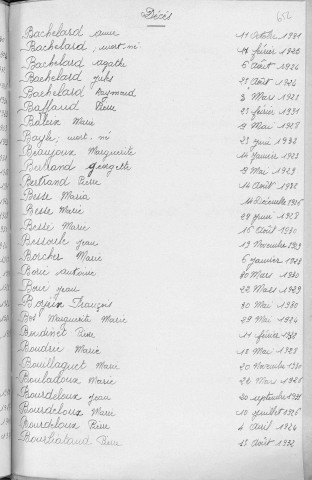 Décès
Bachelard, anne 11 Octobre 1931
Bachelard, mort-né 17 février 1926
Bachelard agathe 6 août 1924
Bachelard Jules
Bachelard Raymond 3 Mars 1923
Baffaud Pierre 23 février 1931
Baleux Marie 9 Mai 1928
Bayle, mort-né 23 juin 1932
Beaujoux Marguerite 14 Janvier 1923
Bertrand georgette 9 Mai 1929
Bertrand Pierre 14 Août 1932
Besse Maria 11 Décembre 1926
Besse Marie 28 juin 1928
Besse Marie 16 août 1930
Bessoule jean 19 Novembre 1929
Borcher Marie 6 janvier 1929
Borie antoine 30 Mars 1930
Borie jean 22 Mars 1929
François 30 Mai 1930
Bot Marguerite Marie 29 Mai 1924
Pierre 11 février 1932
Boudrie Marie 18 Mai 1923
Bouillaguet Marie 20 Novembre
Bouladoux Marie 26 Mars 1926
Bourdeloux Jean 20 septembre
Bourdeloux Marie 10 juillet 1926
Bourdeloux Pierre 4 Avril 1924
Bourliataud Pierre 13 Août 1932